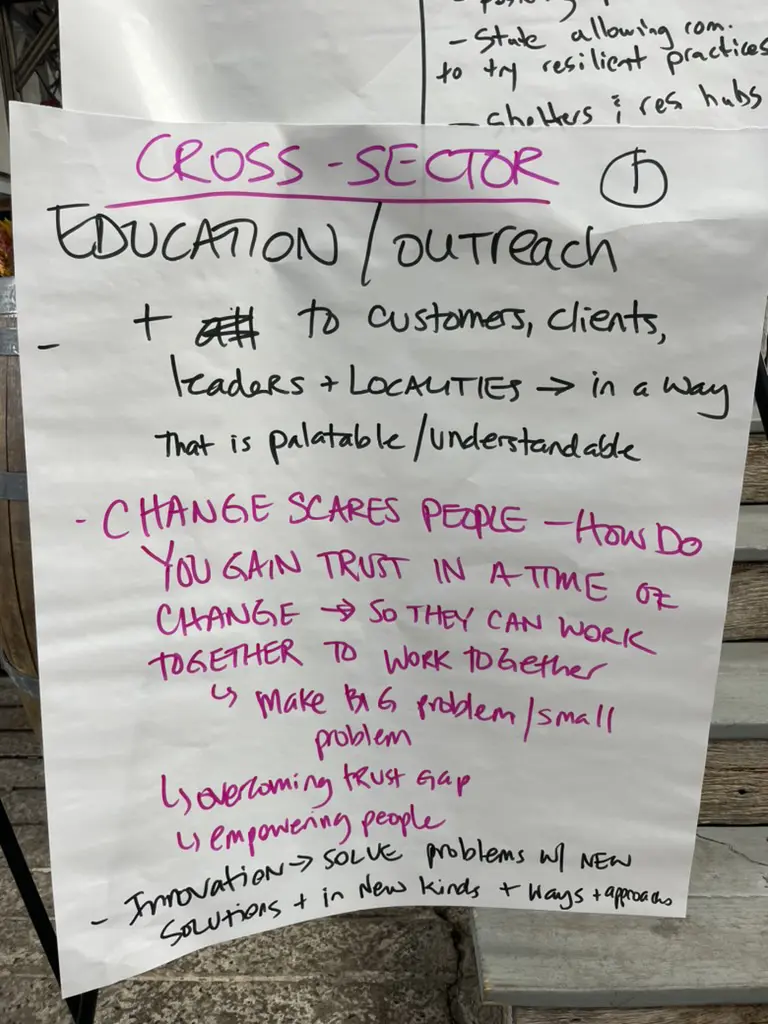 - State allowing com.
to try resilient practices
- shelters & res hubs
CROSS-SECTOR 1
EDUCATION/OUTREACH
- + to customers, clients,
leaders + LOCALITIES → in a way
that is palatable/understandable
- CHANGE SCARES PEOPLE - HOW DO
YOU GAIN TRUST IN A TIME OF
CHANGE → SO THEY CAN WORK
TOGETHER TO WORK TOGETHER
↳ Make BIG problem/small
problem
↳ overcoming trust gap
↳ empowering people
- Innovation → SOLVE problems w/ NEW
solutions + in New kinds + ways + approachs